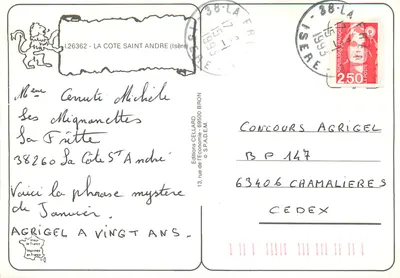 L26362 - LA COTE SAINT ANDRE (Isère)
Mme Cerruto Michèle
Les Mignanettes
La Frette
38260 La Côte St André
Voici la phrase mystère
de Janvier.
AGRIGEL A VINGT ANS.
Editions CELLARD
13, rue de l'Economie - 69500 BRON
© S.P.A.D.E.M.
38-LA
ISERE
1993
38-LA
ISERE
1993
2,50
CONCOURS AGRIGEL
BP 147
63406 CHAMALIERES
CEDEX